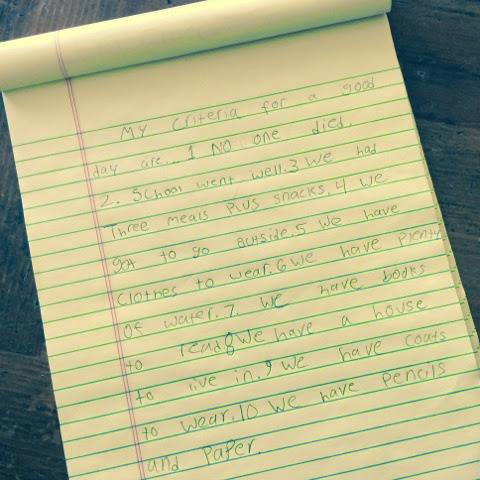 My criteria for a good
day are... 1 No one died.
2. School went well. 3 We had
Three meals plus snacks. 4 We
got to go outside. 5 We have
Clothes to wear. 6 We have plenty
of water. 7. We have books
to read 8 We have a house
to live in. 9 We have coats
to wear. 10 We have pencils
and paper.